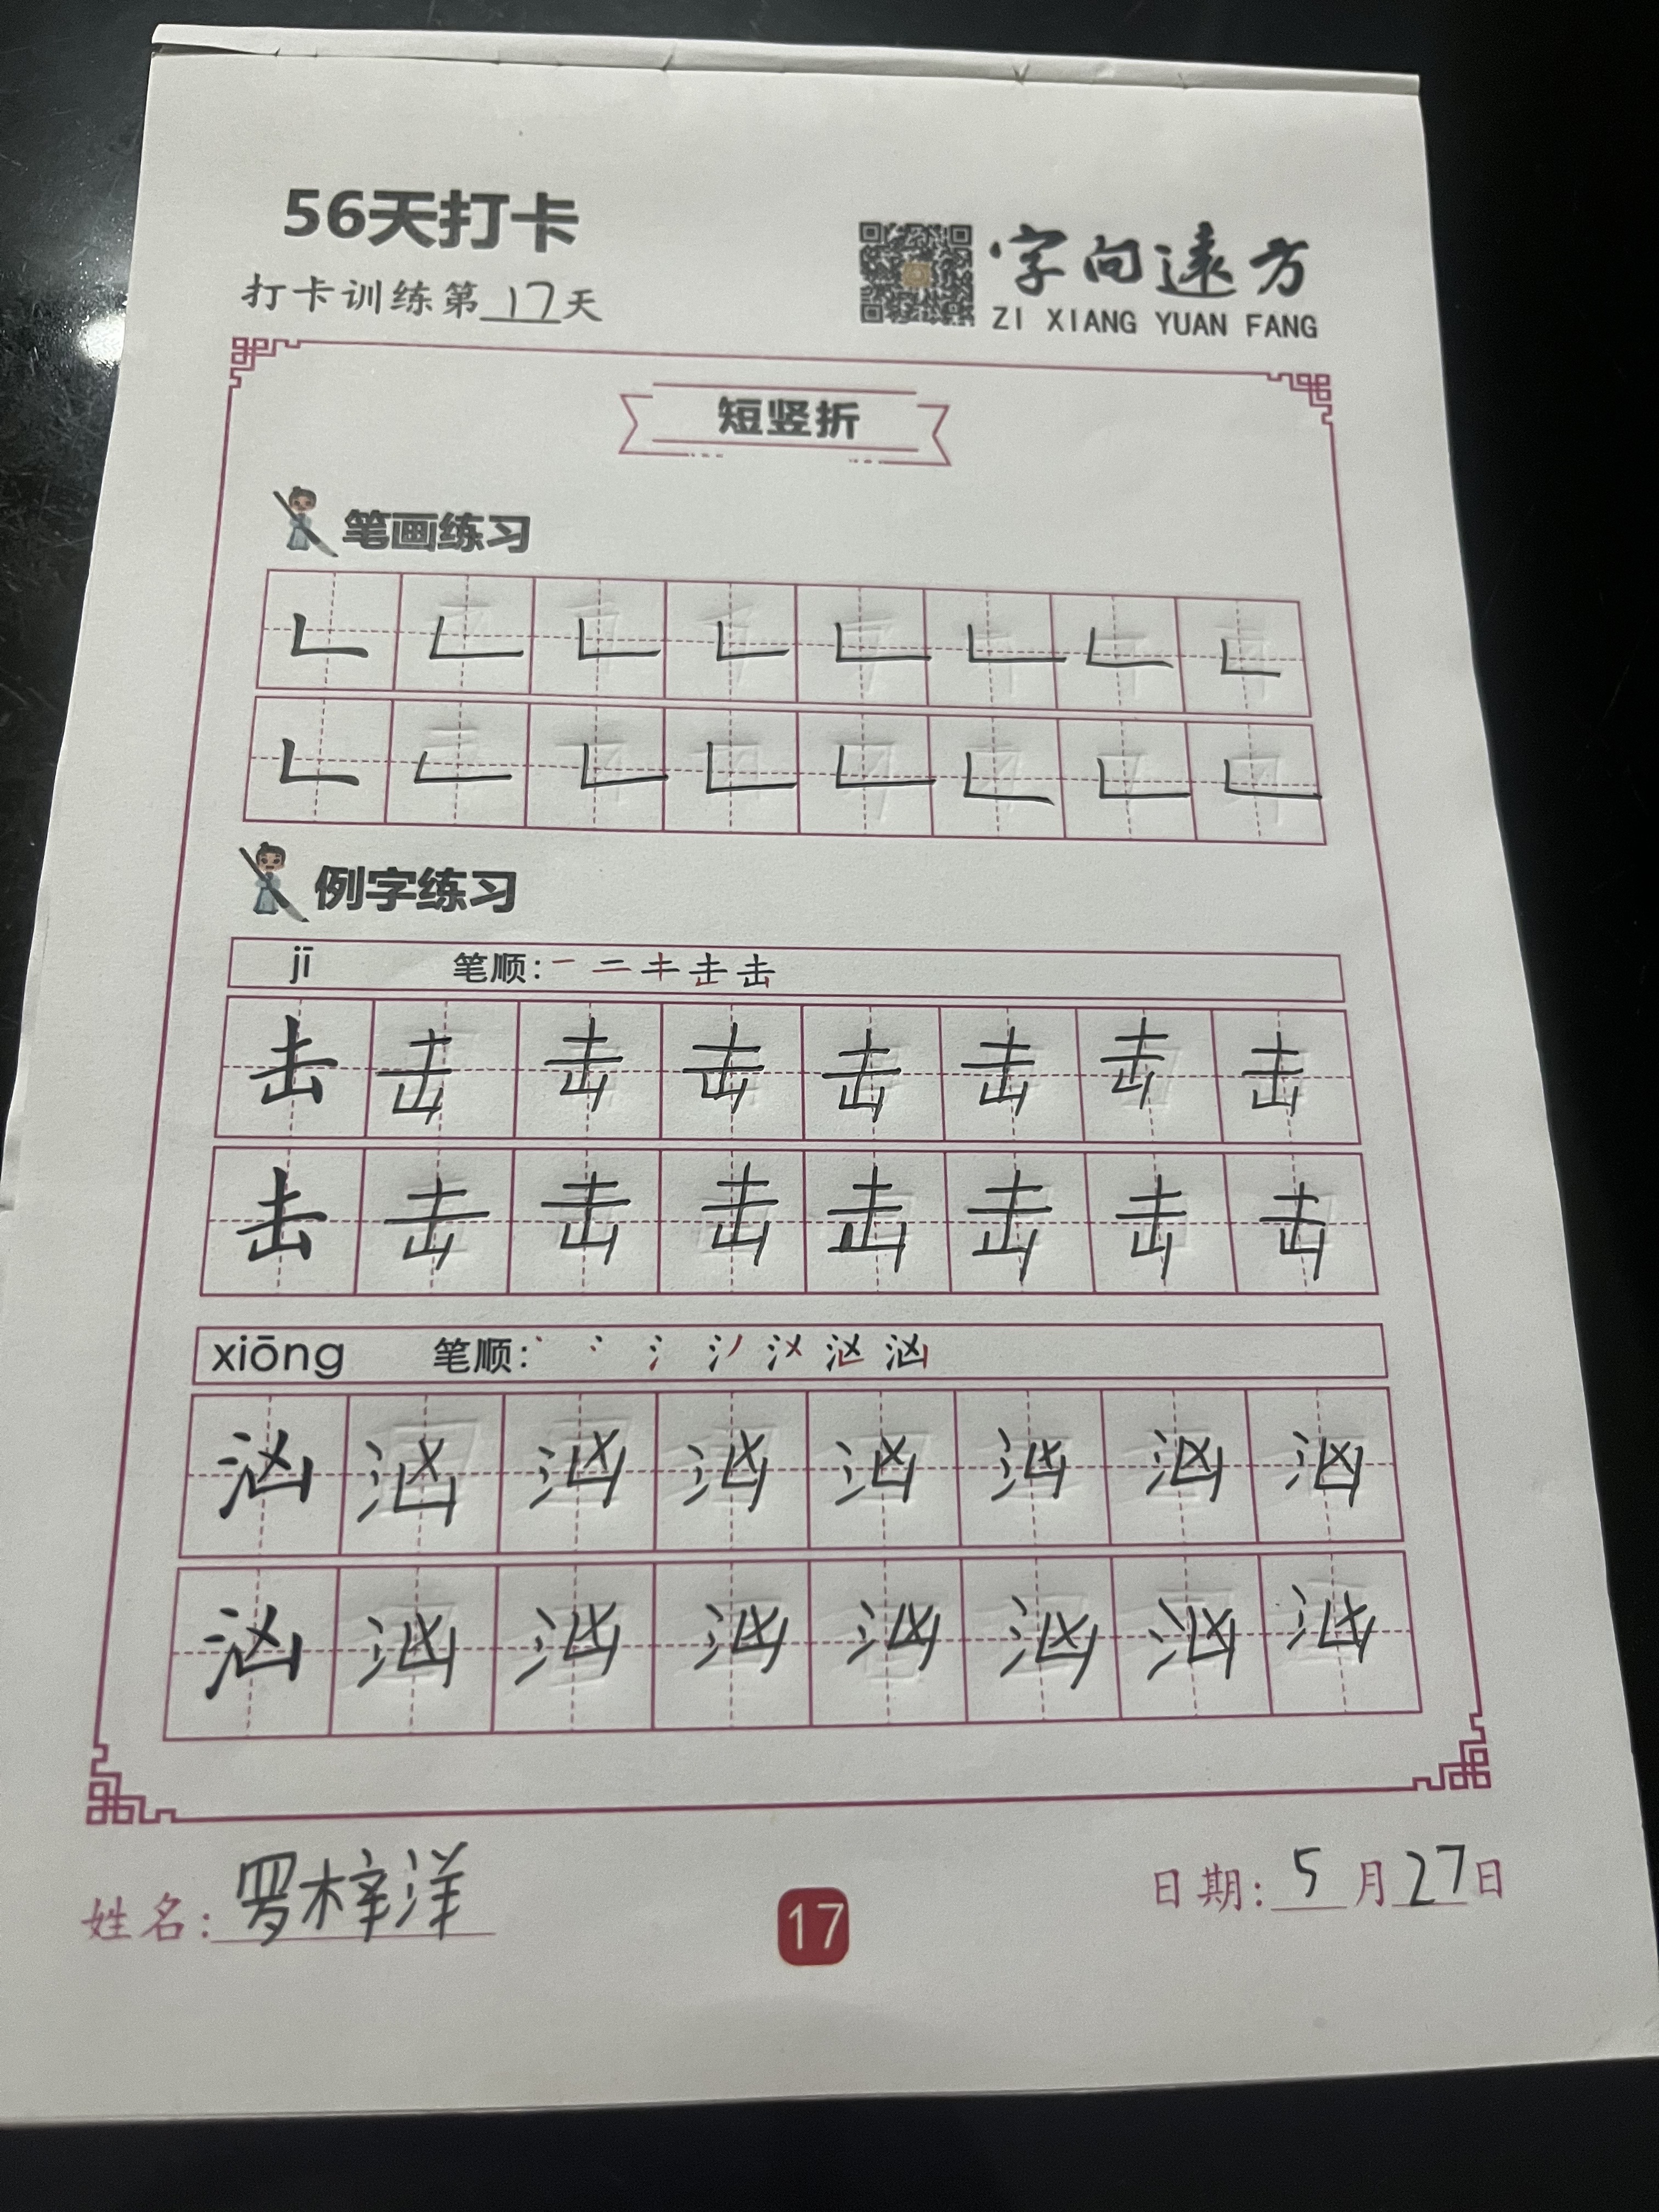 56天打卡
打卡训练第17天
字向远方
ZI XIANG YUAN FANG
短竖折
笔画练习
㇗ ㇗ ㇗ ㇗ ㇗ ㇗ ㇗ ㇗
㇗ ㇗ ㇗ ㇗ ㇗ ㇗ ㇗ ㇗
例字练习
jī 笔顺: 一 二 キ 击 击
击 击 击 击 击 击 击 击
击 击 击 击 击 击 击 击
xiōng 笔顺: 丶 冫 氵 汹
汹 汹 汹 汹 汹 汹 汹 汹
汹 汹 汹 汹 汹 汹 汹 汹
姓名: 罗梓洋
17
日期: 5月27日